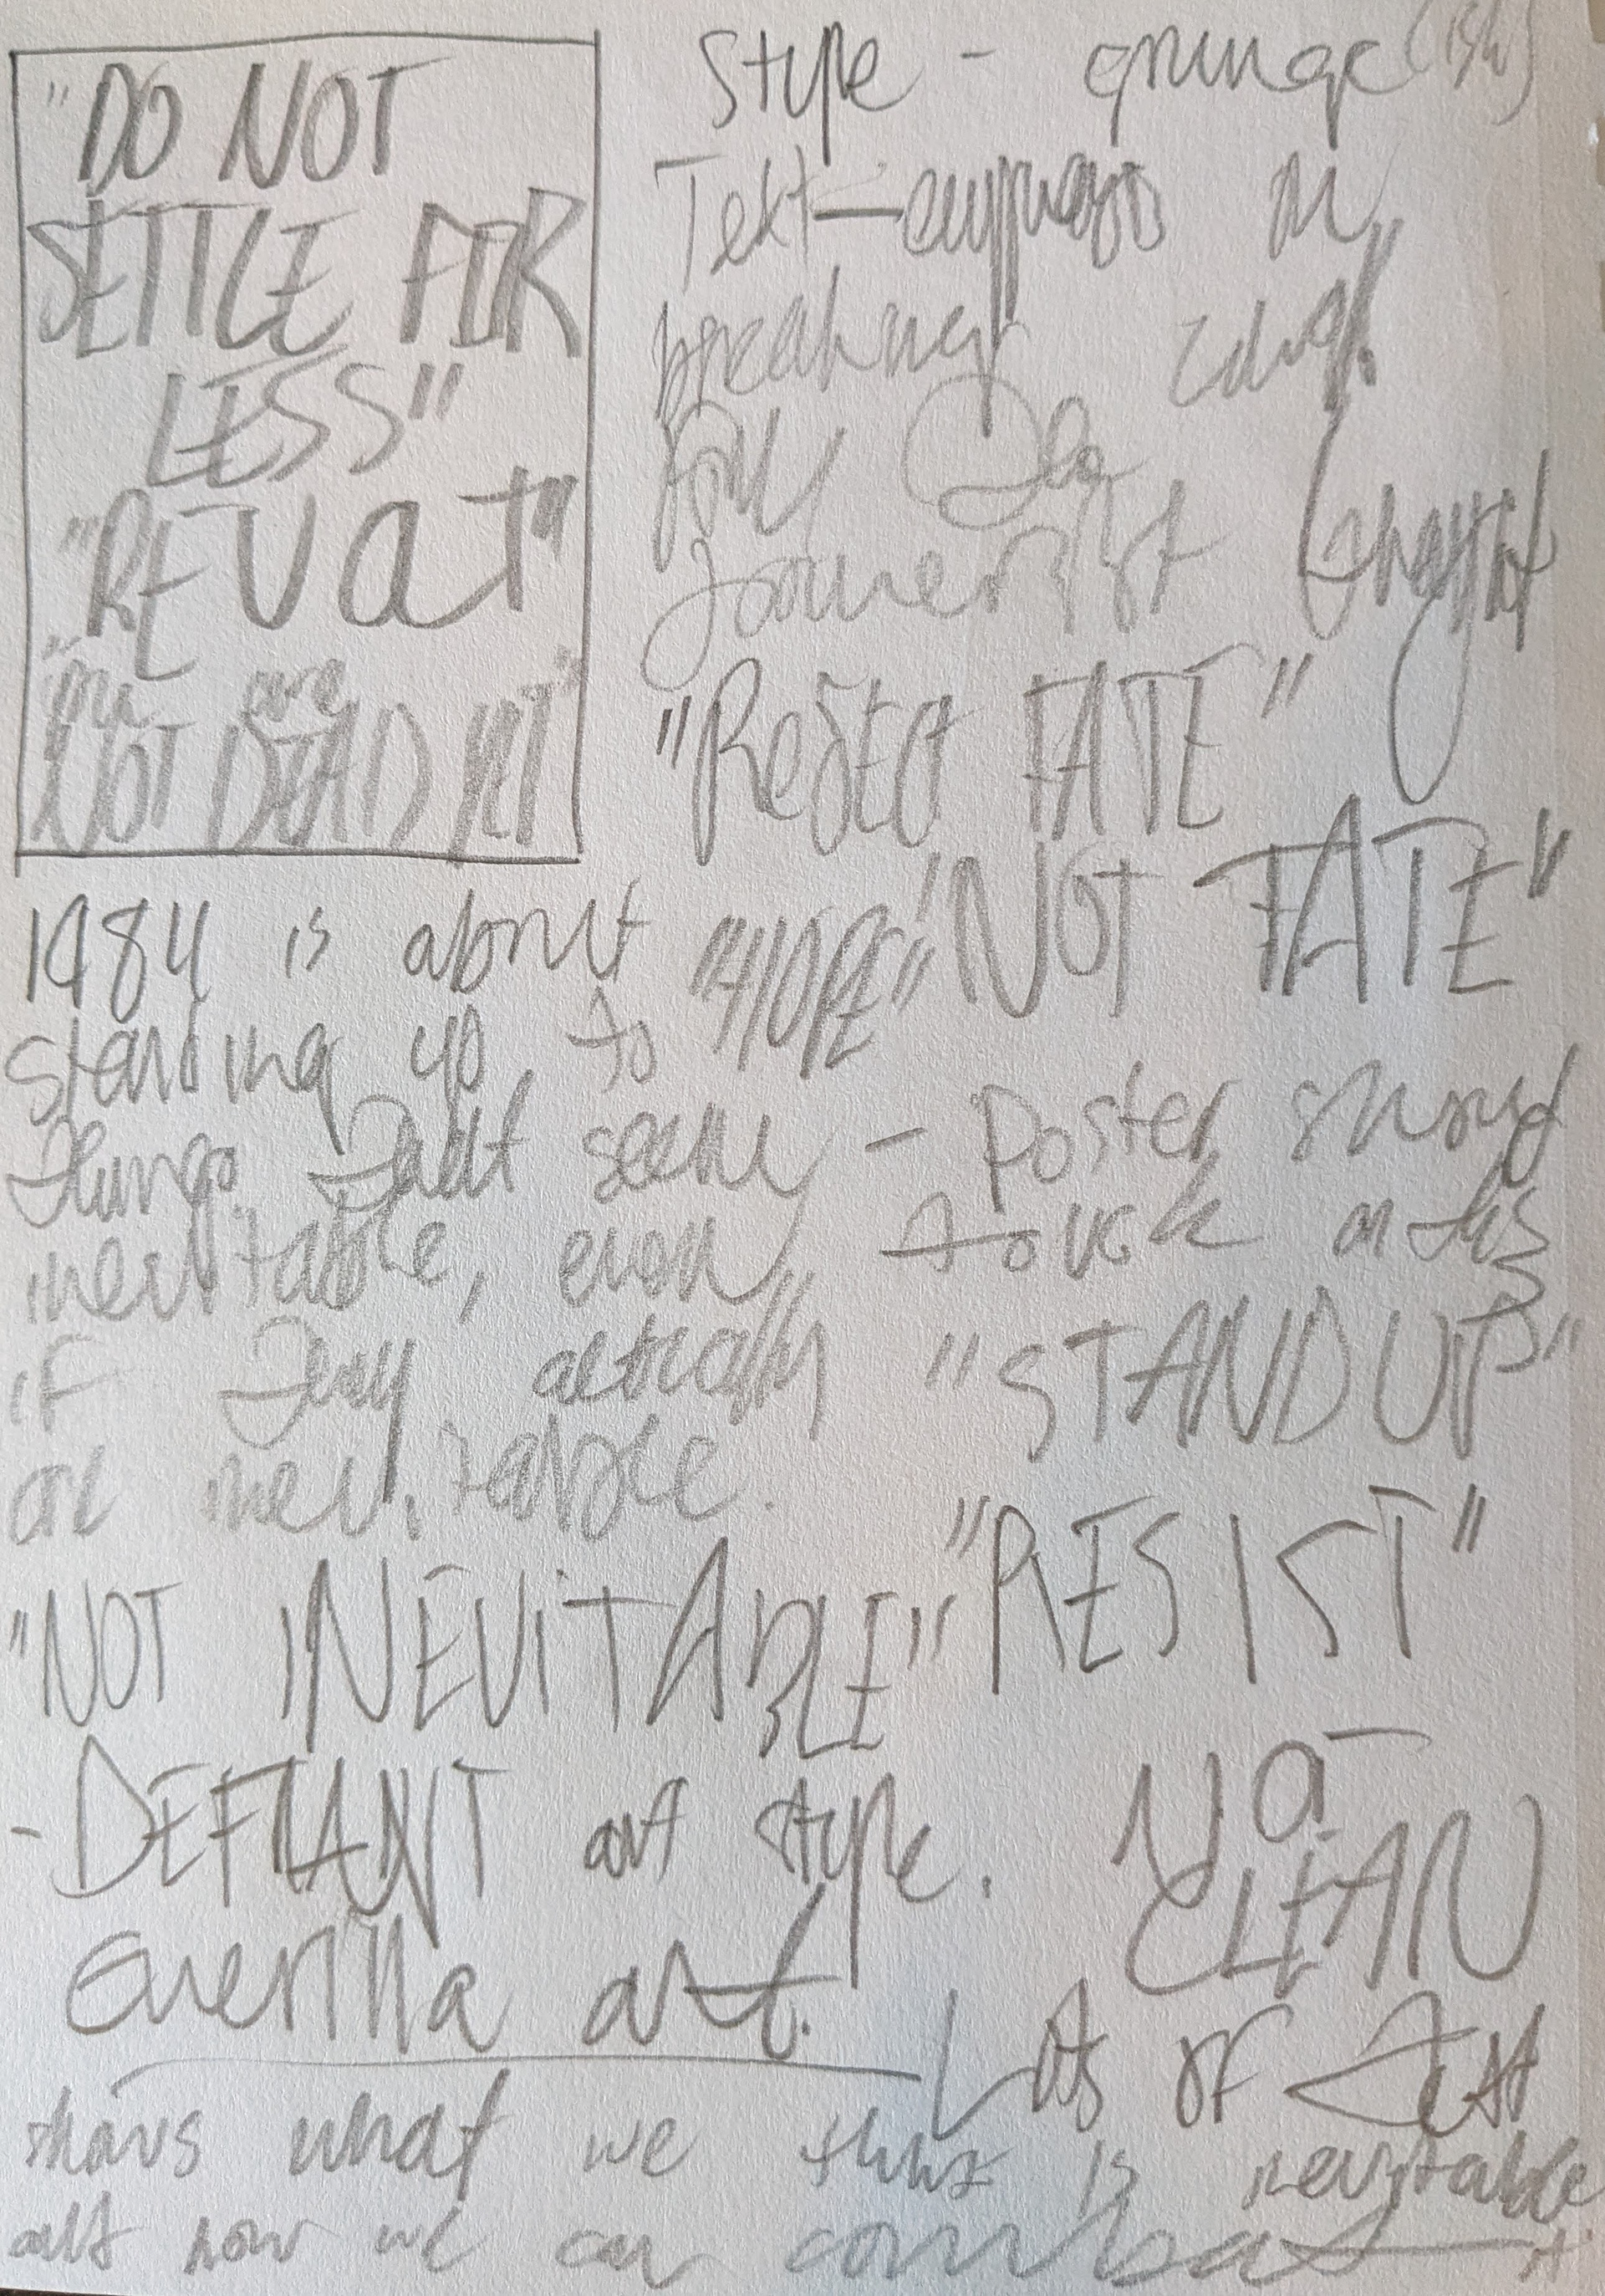 "DO NOT
SETTLE FOR
LESS"
"REVOLT"
NOT DEAD YET"
Style - grunge (ish)
Text - emphasis on
breaking
"Reject FATE"
"NOT FATE"
1984 is about
standing up to
things that seem
inevitable, even
if they actually
are inevitable.
"HOPE"
- Poster should
touch on this
"STAND UP"
"NOT INEVITABLE"
"RESIST"
- DEFIANT art style.
Guerilla art.
NOT
CLEAN
Lots of text
shows what we think is inevitable
and how we can combat it